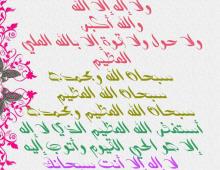 ولا إله إلا الله
والله أكبر
ولا حول ولا قوة إلا بالله العلي
العظيم
سبحان الله وبحمده
سبحان الله العظيم
سبحان الله العظيم وبحمده
أستغفر الله العظيم الذي لا إله
إلا هو الحي القيوم وأتوب إليه
لا إله إلا أنت سبحانك